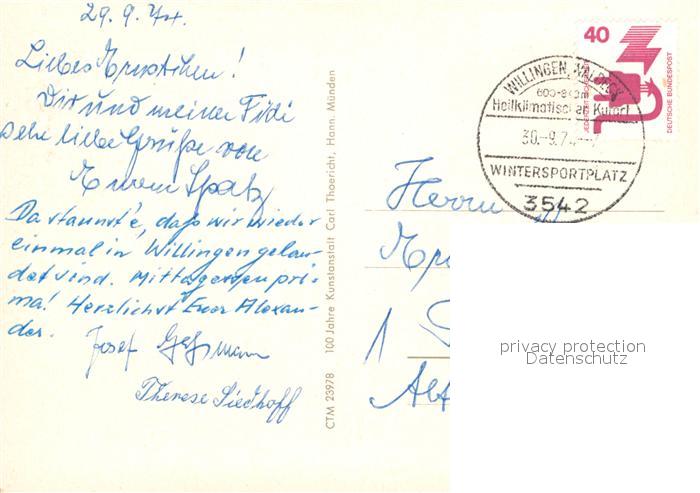 29.9.74.
Liebes Ernstchen!
Dir und meiner Fidi
sehr liebe Grüße von
Eurem Spatz
Da staunst'e, daß wir wieder
einmal in Willingen gelan-
det sind. Mittagessen pri-
ma! Herzlichst Euer Alexan-
der.
Josef
Therese Siedhoff
CTM 23978 100 Jahre Kunstanstalt Carl Thoericht, Hann. Münden
40
DEUTSCHE BUNDESPOST
WILLINGEN, WALDECK
600-843 m
Heilklimatischer Kurort
30.-9.74
WINTERSPORTPLATZ
3542
Herrn
1
privacy protection
Datenschutz